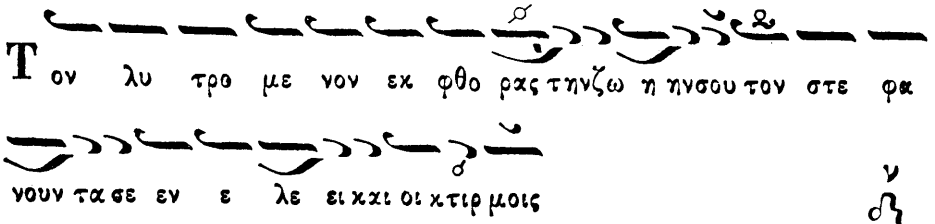 Τον λυ τρο με νον εκ φθο ρας τηνζω η ηνσου τον στε φα
νουν τα σε εν ε λε ει και οι κτιρ μοις
ν